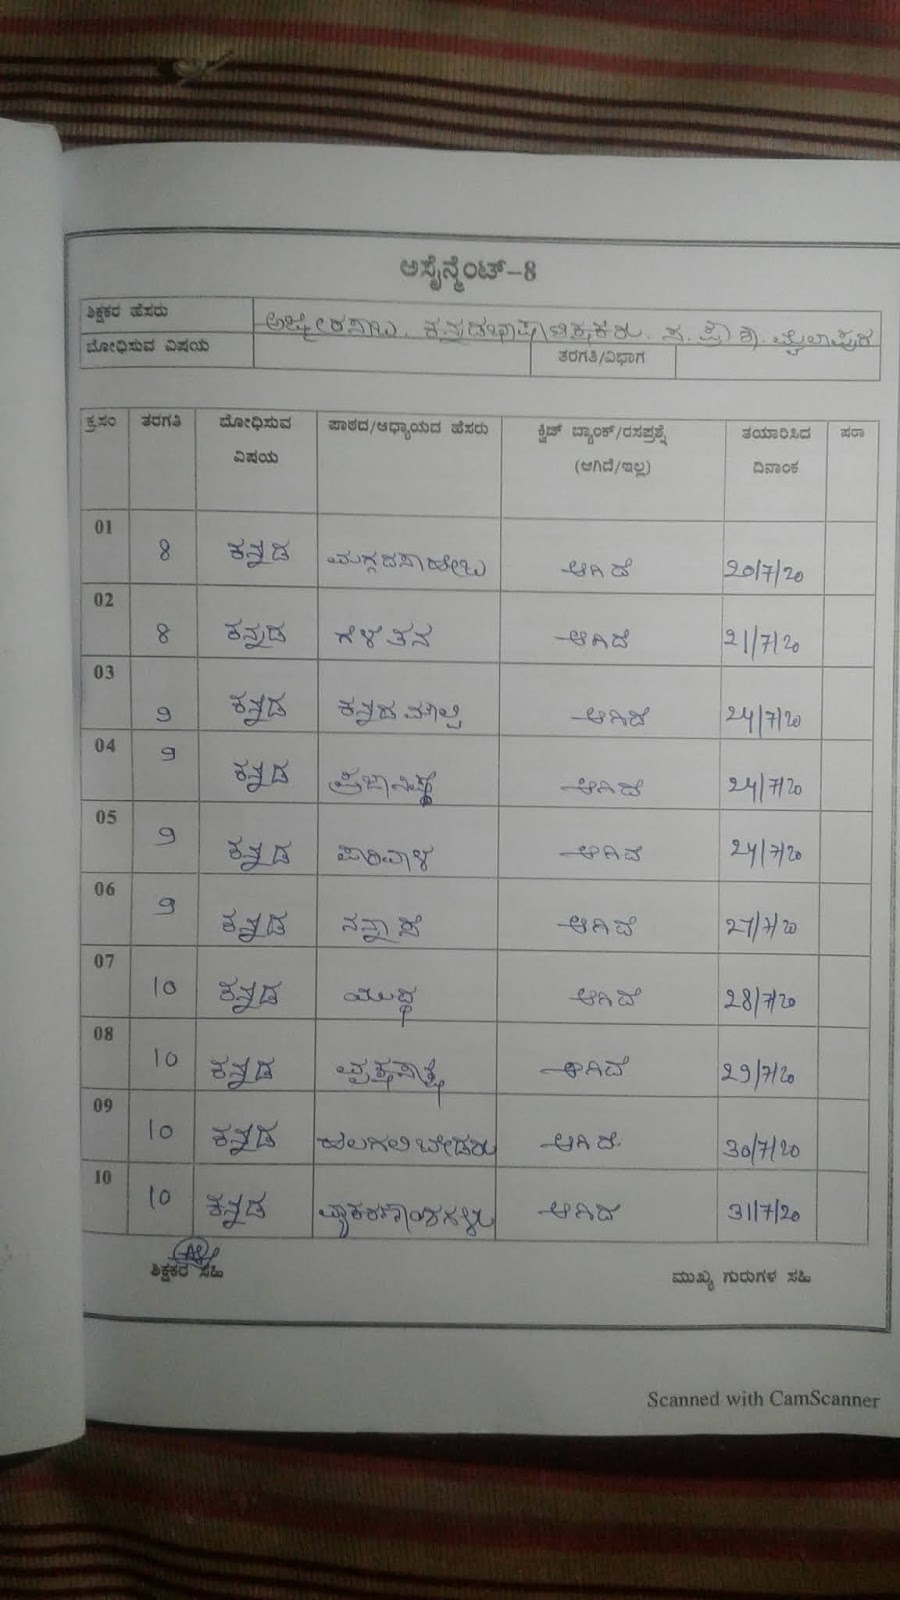 ಅಸೈನ್ಮೆಂಟ್-8
ಶಿಕ್ಷಕರ ಹೆಸರು ಕನ್ನಡಭಾಷಾ ಶಿಕ್ಷಕರು. ಸ. ಪ್ರೌ ಶಾ. ಮೈಲಾಪುರ
ಬೋಧಿಸುವ ವಿಷಯ ತರಗತಿ/ವಿಭಾಗ
ಕ್ರ.ಸಂ ತರಗತಿ ಬೋಧಿಸುವ ವಿಷಯ ಪಾಠದ/ಅಧ್ಯಾಯದ ಹೆಸರು ಕ್ವಿಜ್ ಬ್ಯಾಂಕ್/ರಸಪ್ರಶ್ನೆ (ಆಗಿದೆ/ಇಲ್ಲ) ತಯಾರಿಸಿದ ದಿನಾಂಕ ಷರಾ
01 8 ಕನ್ನಡ ಮಗ್ಗದಸಾಹೇಬ ಆಗಿದೆ 20/7/20
02 8 ಕನ್ನಡ ಗೆಳೆತನ ಆಗಿದೆ 21/7/20
03 9 ಕನ್ನಡ ಕನ್ನಡ ಮೌಲ್ವಿ ಆಗಿದೆ 24/7/20
04 9 ಕನ್ನಡ ಪ್ರಜಾನಿಷ್ಠೆ ಆಗಿದೆ 24/7/20
05 9 ಕನ್ನಡ ಪಾರಿವಾಳ ಆಗಿದೆ 24/7/20
06 9 ಕನ್ನಡ ನನ್ನಾಸೆ ಆಗಿದೆ 27/7/20
07 10 ಕನ್ನಡ ಯುದ್ಧ ಆಗಿದೆ 28/7/20
08 10 ಕನ್ನಡ ವೃಕ್ಷಸಾಕ್ಷಿ ಆಗಿದೆ 29/7/20
09 10 ಕನ್ನಡ ಹಲಗಲಿ ಬೇಡರು ಆಗಿದೆ 30/7/20
10 10 ಕನ್ನಡ ವ್ಯಾಕರಣಾಂಶಗಳು ಆಗಿದೆ 31/7/20
ಶಿಕ್ಷಕರ ಸಹಿ ಮುಖ್ಯ ಗುರುಗಳ ಸಹಿ
Scanned with CamScanner